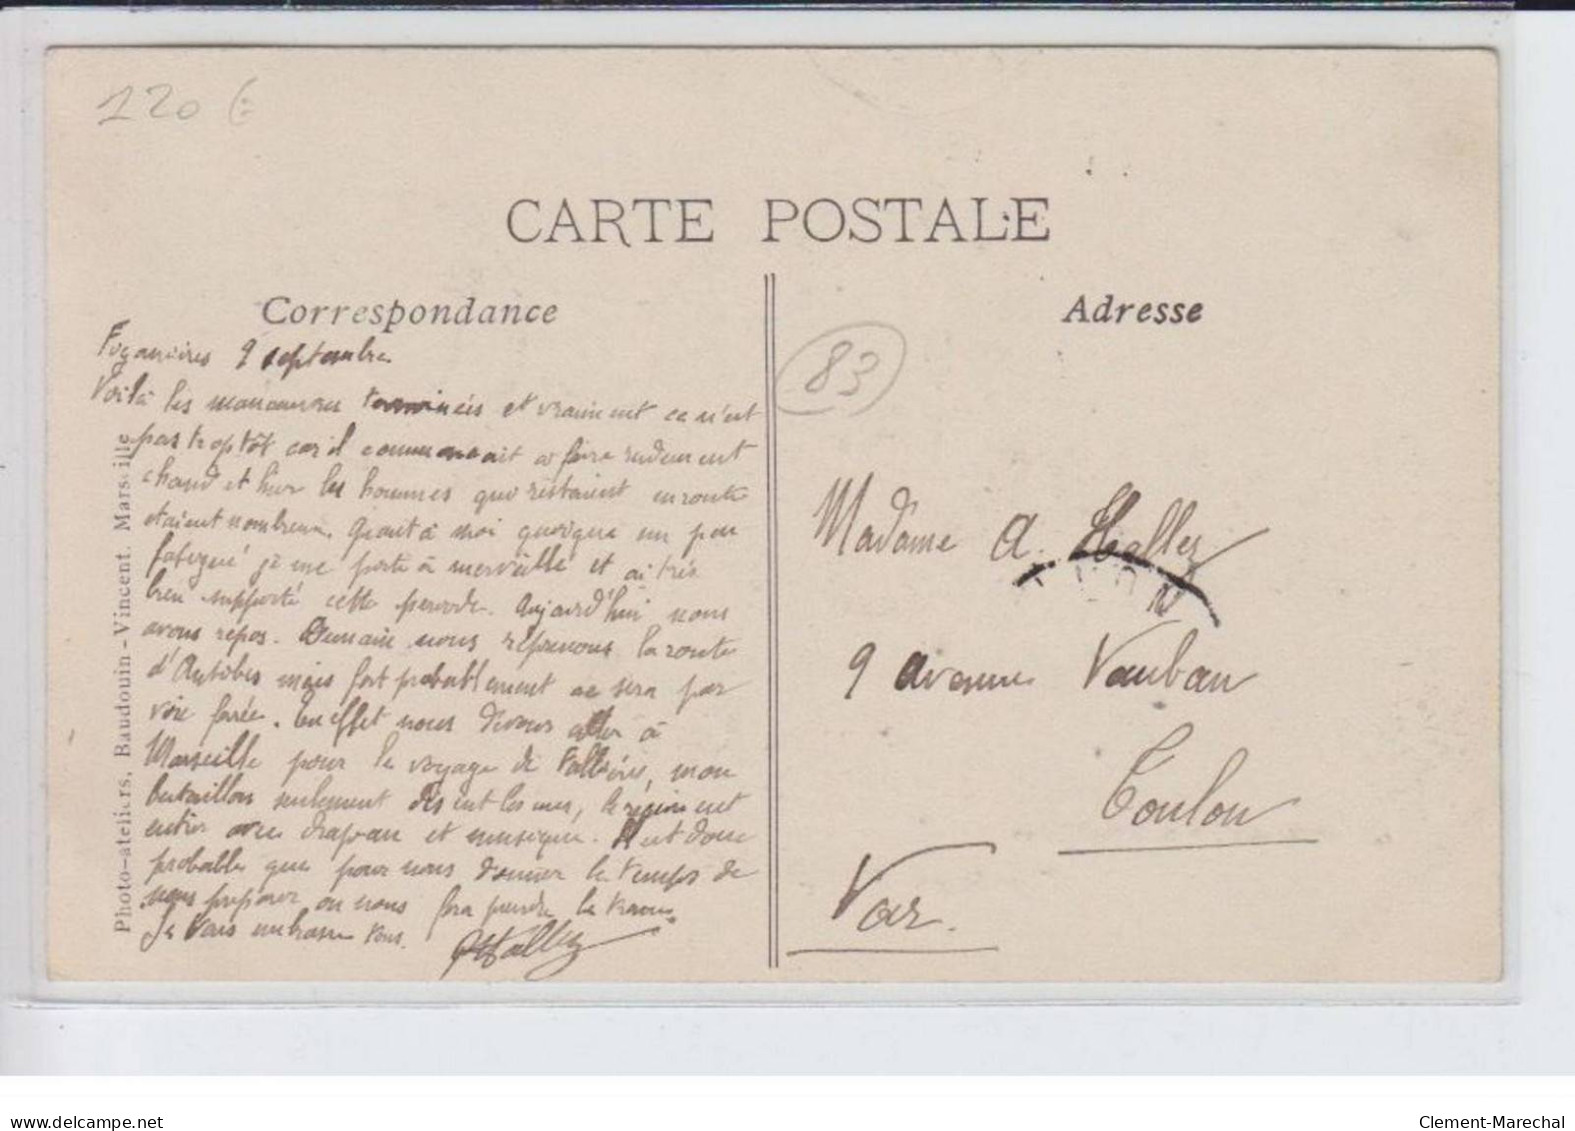 120 €
CARTE POSTALE
Correspondance
Adresse
83
Figanières 9 septembre
Voilà les manoeuvres terminées et vraiment ce n'est
pas trop tôt car il commençait a faire rudement
chaud et hier les hommes qui restaient en route
étaient nombreux. Quant à moi quoique un peu
fatigué je me porte à merveille et ai très
bien supporté cette periode. Aujourd'hui nous
avons repos. Demain nous reprenons la route
d'Antibes mais fort probablement ce sera par
voie ferrée. En effet nous devons aller à
Marseille pour le voyage de Fallières, mon
bataillon seulement disent les uns, le régiment
entier avec drapeau et musique. Il est donc
probable que pour nous donner le temps de
nous préparer on nous fera prendre le
Je vous embrasse tous.
Photo-ateliers, Baudouin-Vincent. Marseille
Madame A. Hallez
9 avenue Vauban
Toulon
Var.
delcampe.net
Clement-Marechal